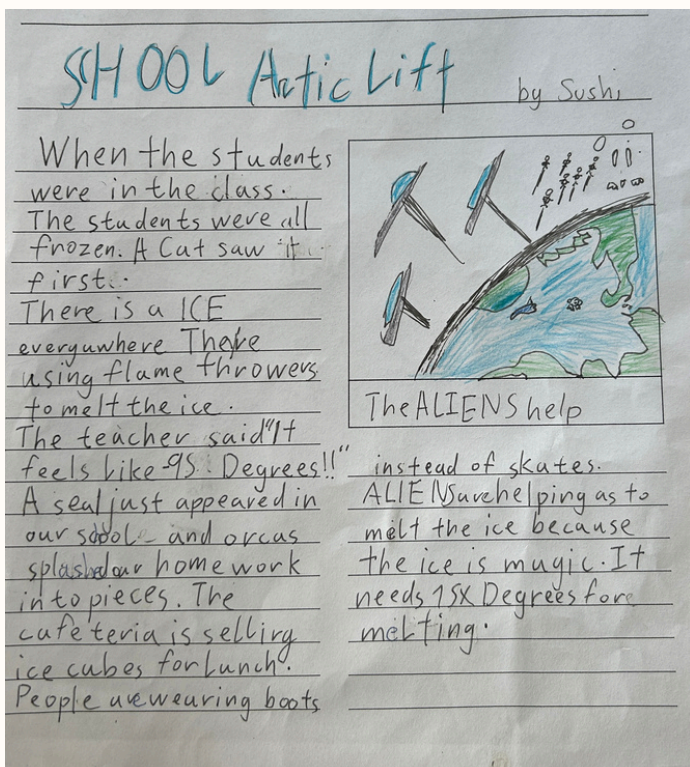 SCHOOL Artic Lift
by Sushi
When the students
were in the class.
The students were all
frozen. A Cat saw it
first.
There is a ICE
everyuwhere There
using flame throwers
to melt the ice.
The teacher said "It
feels like -95 Degrees!!"
A seal just appeared in
our sool and orcas
splashed our home work
into pieces. The
cafeteria is selling
ice cubes for Lunch.
People are wearing boots
The ALIENS help
instead of skates.
ALIENS are helping as to
melt the ice because
the ice is mugic. It
needs 15X Degrees fore
melting.